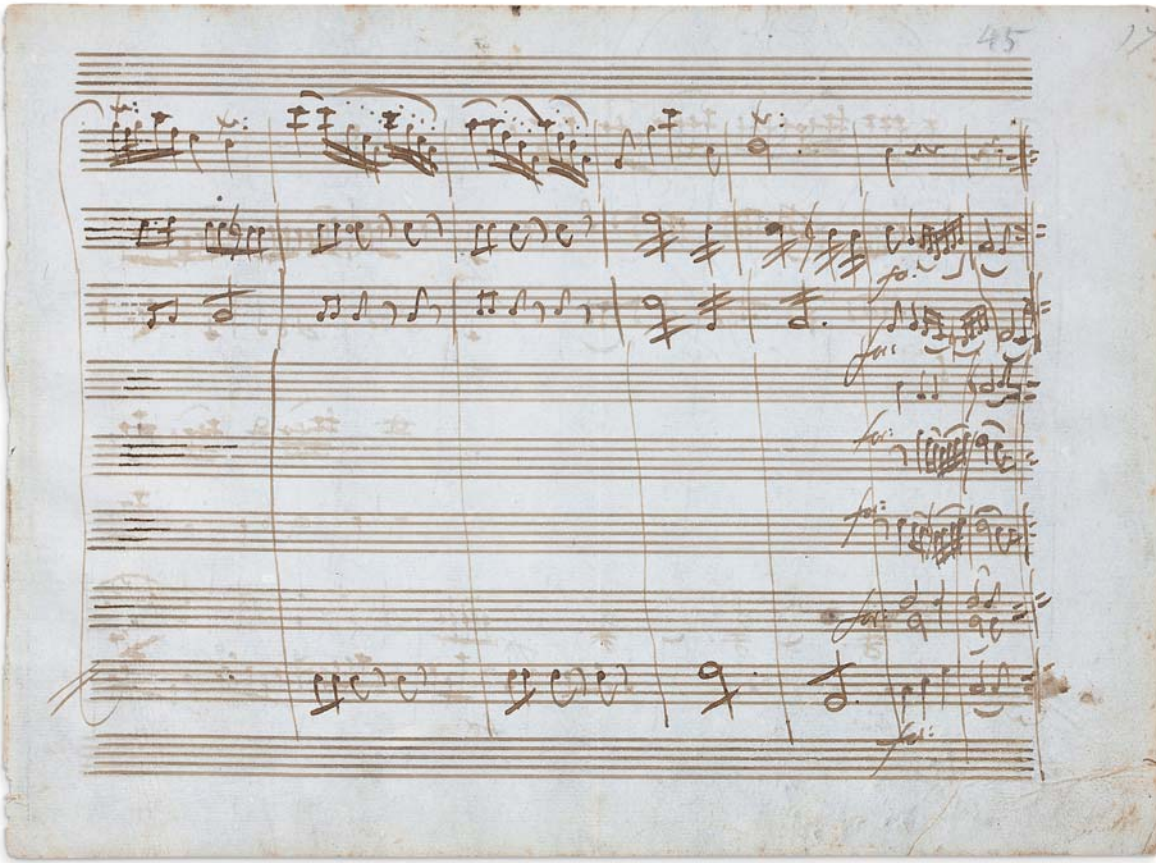 45
tr: tr: tr:
fo:
for:
for:
for:
for:
for: